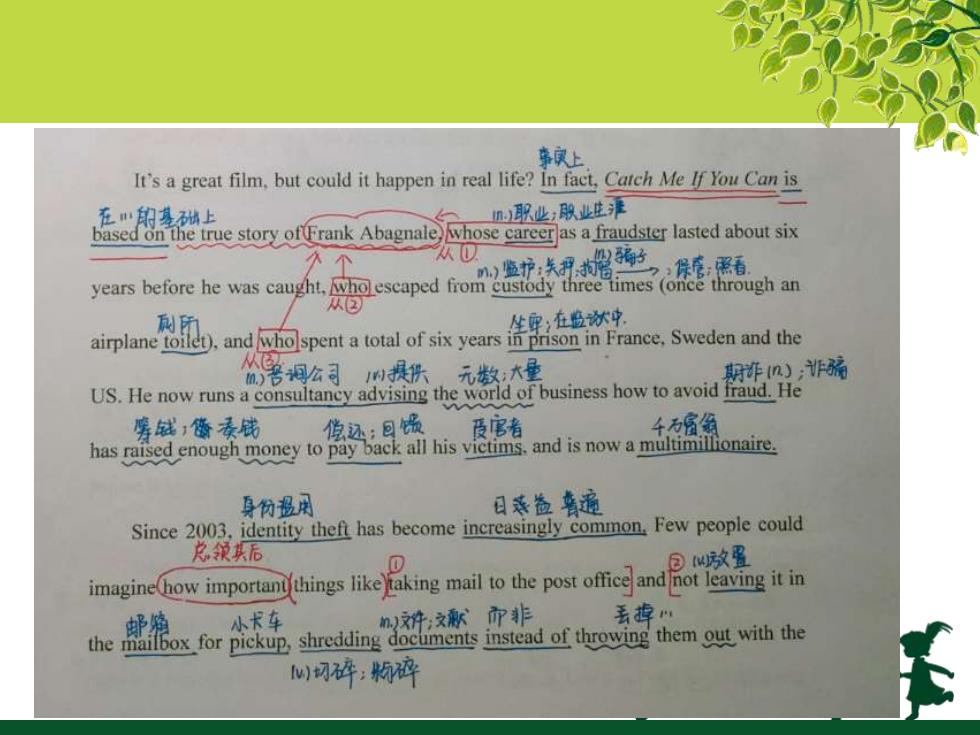 事实上
It's a great film, but could it happen in real life? In fact, Catch Me If You Can is
在…的基础上 (n.)职业;职业生涯
based on the true story of Frank Abagnale, whose career as a fraudster lasted about six
从① (n.)骗子
(n.)监护;关押;拘留 ;保管;照看
years before he was caught, who escaped from custody three times (once through an
从②
厕所 坐牢;在监狱中
airplane toilet), and who spent a total of six years in prison in France, Sweden and the
从③
(n.)咨询公司 (v)提供 无数;大量 欺诈(n);诈骗
US. He now runs a consultancy advising the world of business how to avoid fraud. He
筹钱;凑钱 偿还;回馈 受害者 千万富翁
has raised enough money to pay back all his victims, and is now a multimillionaire.
身份盗用 日益 普遍
Since 2003, identity theft has become increasingly common. Few people could
总领其后 ① ② (v)放置
imagine how important things like taking mail to the post office and not leaving it in
邮箱 小卡车 (n.)文件;文献 而非 丢掉…
the mailbox for pickup, shredding documents instead of throwing them out with the
(v.)切碎;撕碎